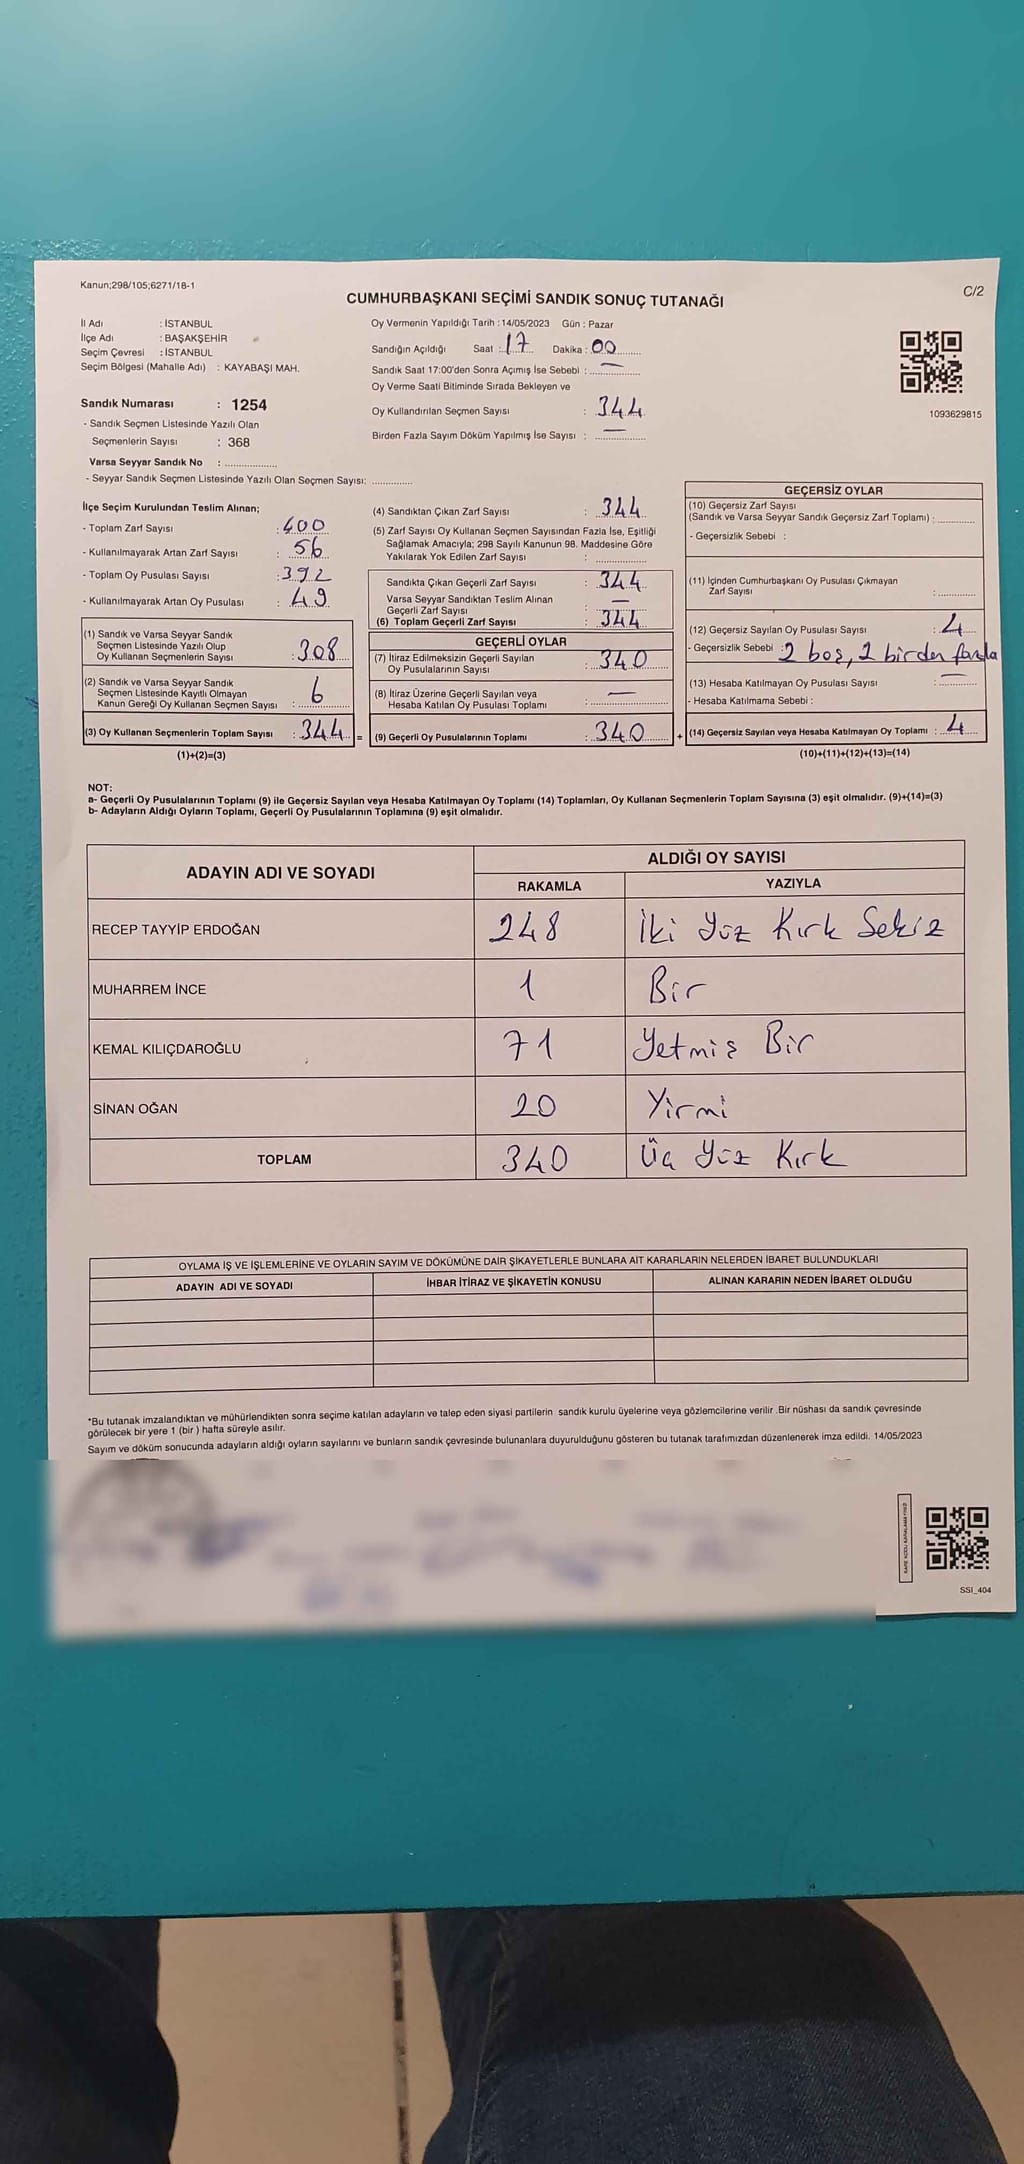 Kanun;298/105;6271/18-1
C/2
CUMHURBAŞKANI SEÇİMİ SANDIK SONUÇ TUTANAĞI
İl Adı : İSTANBUL
İlçe Adı : BAŞAKŞEHİR
Seçim Çevresi : İSTANBUL
Seçim Bölgesi (Mahalle Adı) : KAYABAŞI MAH.
Sandık Numarası : 1254
- Sandık Seçmen Listesinde Yazılı Olan
Seçmenlerin Sayısı : 368
Varsa Seyyar Sandık No : ..................
- Seyyar Sandık Seçmen Listesinde Yazılı Olan Seçmen Sayısı: ..............
Oy Vermenin Yapıldığı Tarih : 14/05/2023 Gün : Pazar
Sandığın Açıldığı Saat : 17 Dakika : 00
Sandık Saat 17:00'den Sonra Açımış İse Sebebi : —
Oy Verme Saati Bitiminde Sırada Bekleyen ve
Oy Kullandırılan Seçmen Sayısı : 344
Birden Fazla Sayım Döküm Yapılmış İse Sayısı : —
1093629815
İlçe Seçim Kurulundan Teslim Alınan;
- Toplam Zarf Sayısı : 400
- Kullanılmayarak Artan Zarf Sayısı : 56
- Toplam Oy Pusulası Sayısı : 392
- Kullanılmayarak Artan Oy Pusulası : 49
(1) Sandık ve Varsa Seyyar Sandık
Seçmen Listesinde Yazılı Olup
Oy Kullanan Seçmenlerin Sayısı : 308
(2) Sandık ve Varsa Seyyar Sandık
Seçmen Listesinde Kayıtlı Olmayan
Kanun Gereği Oy Kullanan Seçmen Sayısı : 6
(3) Oy Kullanan Seçmenlerin Toplam Sayısı : 344 =
(1)+(2)=(3)
(4) Sandıktan Çıkan Zarf Sayısı : 344
(5) Zarf Sayısı Oy Kullanan Seçmen Sayısından Fazla İse, Eşitliği
Sağlamak Amacıyla; 298 Sayılı Kanunun 98. Maddesine Göre
Yakılarak Yok Edilen Zarf Sayısı : ..............
Sandıkta Çıkan Geçerli Zarf Sayısı : 344
Varsa Seyyar Sandıktan Teslim Alınan
Geçerli Zarf Sayısı : —
(6) Toplam Geçerli Zarf Sayısı : 344
GEÇERLİ OYLAR
(7) İtiraz Edilmeksizin Geçerli Sayılan
Oy Pusulalarının Sayısı : 340
(8) İtiraz Üzerine Geçerli Sayılan veya
Hesaba Katılan Oy Pusulası Toplamı : —
(9) Geçerli Oy Pusulalarının Toplamı : 340 +
GEÇERSİZ OYLAR
(10) Geçersiz Zarf Sayısı
(Sandık ve Varsa Seyyar Sandık Geçersiz Zarf Toplamı) : ............
- Geçersizlik Sebebi :
(11) İçinden Cumhurbaşkanı Oy Pusulası Çıkmayan
Zarf Sayısı : ............
(12) Geçersiz Sayılan Oy Pusulası Sayısı : 4
- Geçersizlik Sebebi : 2 boş, 2 birden fazla
(13) Hesaba Katılmayan Oy Pusulası Sayısı : —
- Hesaba Katılmama Sebebi :
(14) Geçersiz Sayılan veya Hesaba Katılmayan Oy Toplamı : 4
(10)+(11)+(12)+(13)=(14)
NOT:
a- Geçerli Oy Pusulalarının Toplamı (9) ile Geçersiz Sayılan veya Hesaba Katılmayan Oy Toplamı (14) Toplamları, Oy Kullanan Seçmenlerin Toplam Sayısına (3) eşit olmalıdır. (9)+(14)=(3)
b- Adayların Aldığı Oyların Toplamı, Geçerli Oy Pusulalarının Toplamına (9) eşit olmalıdır.
ADAYIN ADI VE SOYADI
ALDIĞI OY SAYISI
RAKAMLA YAZIYLA
RECEP TAYYİP ERDOĞAN 248 İki Yüz Kırk Sekiz
MUHARREM İNCE 1 Bir
KEMAL KILIÇDAROĞLU 71 Yetmiş Bir
SİNAN OĞAN 20 Yirmi
TOPLAM 340 Üç Yüz Kırk
OYLAMA İŞ VE İŞLEMLERİNE VE OYLARIN SAYIM VE DÖKÜMÜNE DAİR ŞİKAYETLERLE BUNLARA AİT KARARLARIN NELERDEN İBARET BULUNDUKLARI
ADAYIN ADI VE SOYADI İHBAR İTİRAZ VE ŞİKAYETİN KONUSU ALINAN KARARIN NEDEN İBARET OLDUĞU
*Bu tutanak imzalandıktan ve mühürlendikten sonra seçime katılan adayların ve talep eden siyasi partilerin sandık kurulu üyelerine veya gözlemcilerine verilir .Bir nüshası da sandık çevresinde
görülecek bir yere 1 (bir ) hafta süreyle asılır.
Sayım ve döküm sonucunda adayların aldığı oyların sayılarını ve bunların sandık çevresinde bulunanlara duyurulduğunu gösteren bu tutanak tarafımızdan düzenlenerek imza edildi. 14/05/2023
SSI_404